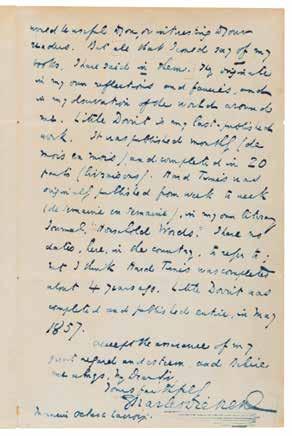 would be useful to you, or interesting to your
readers. But all that I could say of my
books, I have said in them. They originate
in my own reflections and fancies, and
in my observation of the world around
me. Little Dorrit is my last published
work. It was published monthly (de
mois en mois) and completed in 20
parts (livraisons). Hard Times was
originally published from week to week
(de semaine en semaine), in my own
Journal, "Household Words." I have no
dates, here, in the country, to refer to;
but I think Hard Times was completed
about 4 years ago. Little Dorrit was
completed and published entire, in May
1857.
accept the assurance of my
great regard and esteem, and believe
me always, My Dear Sir
Yours faithfully
Charles Dickens
Monsieur